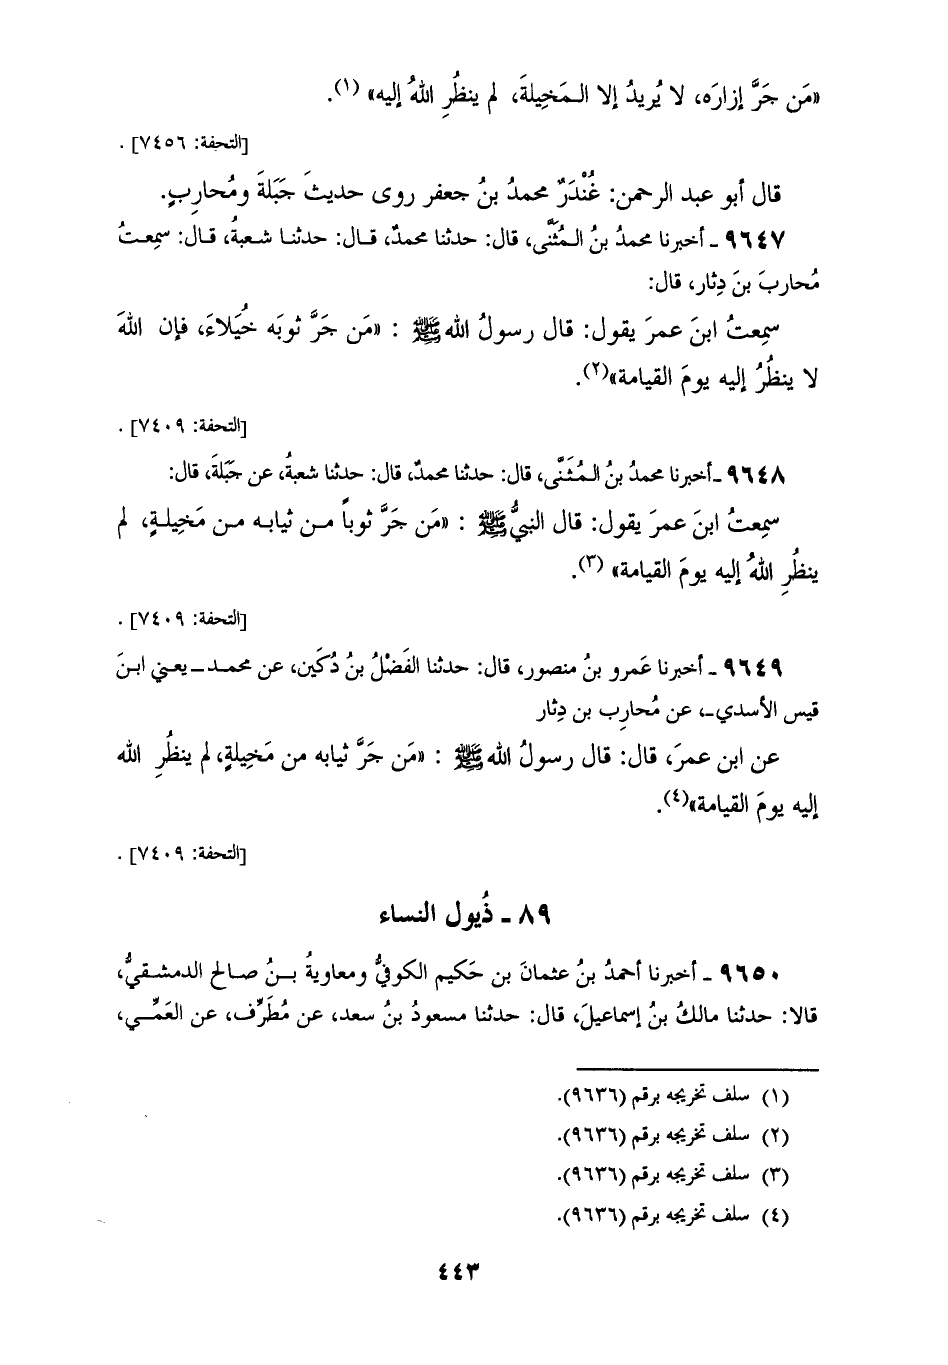 «مَن جَرَّ إزارَه، لا يُريدُ إلا المَخِيلةَ، لم ينظُرِ اللهُ إليه» (١).
[التحفة: ٧٤٥٦] .
قال أبو عبد الرحمن: غُنْدَرٌ محمدُ بنُ جعفر روى حديثَ جَبَلةَ ومُحارِبٍ.
٩٦٤٧ ـ أخبرنا محمدُ بنُ المُثَنَّى، قال: حدثنا محمدٌ، قال: حدثنا شعبةُ، قال: سمِعتُ
مُحارِبَ بنَ دِثار، قال:
سمِعتُ ابنَ عمرَ يقول: قال رسولُ الله ﷺ : «مَن جَرَّ ثوبَه خُيَلاءَ، فإن اللهَ
لا ينظُرُ إليه يومَ القيامة»(٢).
[التحفة: ٧٤٠٩] .
٩٦٤٨ ـأخبرنا محمدُ بنُ المُثَنَّى، قال: حدثنا محمدٌ، قال: حدثنا شعبةُ، عن جَبَلةَ، قال:
سمِعتُ ابنَ عمرَ يقول: قال النبيُّ ﷺ : «مَن جَرَّ ثوباً من ثيابه من مَخِيلةٍ، لم
ينظُرِ اللهُ إليه يومَ القيامة» (٣).
[التحفة: ٧٤٠٩] .
٩٦٤٩ ـ أخبرنا عَمرو بنُ منصور، قال: حدثنا الفَضْلُ بنُ دُكَين، عن محمد ـ يعني ابنَ
قيس الأسدي ـ، عن مُحارِب بن دِثار
عن ابن عمرَ، قال: قال رسولُ الله ﷺ : «مَن جَرَّ ثيابه من مَخِيلةٍ، لم ينظُرِ الله
إليه يومَ القيامة»(٤).
[التحفة: ٧٤٠٩] .
٨٩ ـ ذُيول النساء
٩٦٥٠ ـ أخبرنا أحمدُ بنُ عثمانَ بن حَكيم الكوفيُّ ومعاويةُ بنُ صالح الدمشقيُّ،
قالا: حدثنا مالكُ بنُ إسماعيلَ، قال: حدثنا مسعودُ بنُ سعد، عن مُطَرِّف، عن العَمِّي،
(١) سلف تخريجه برقم (٩٦٣٦).
(٢) سلف تخريجه برقم (٩٦٣٦).
(٣) سلف تخريجه برقم (٩٦٣٦).
(٤) سلف تخريجه برقم (٩٦٣٦).
٤٤٣